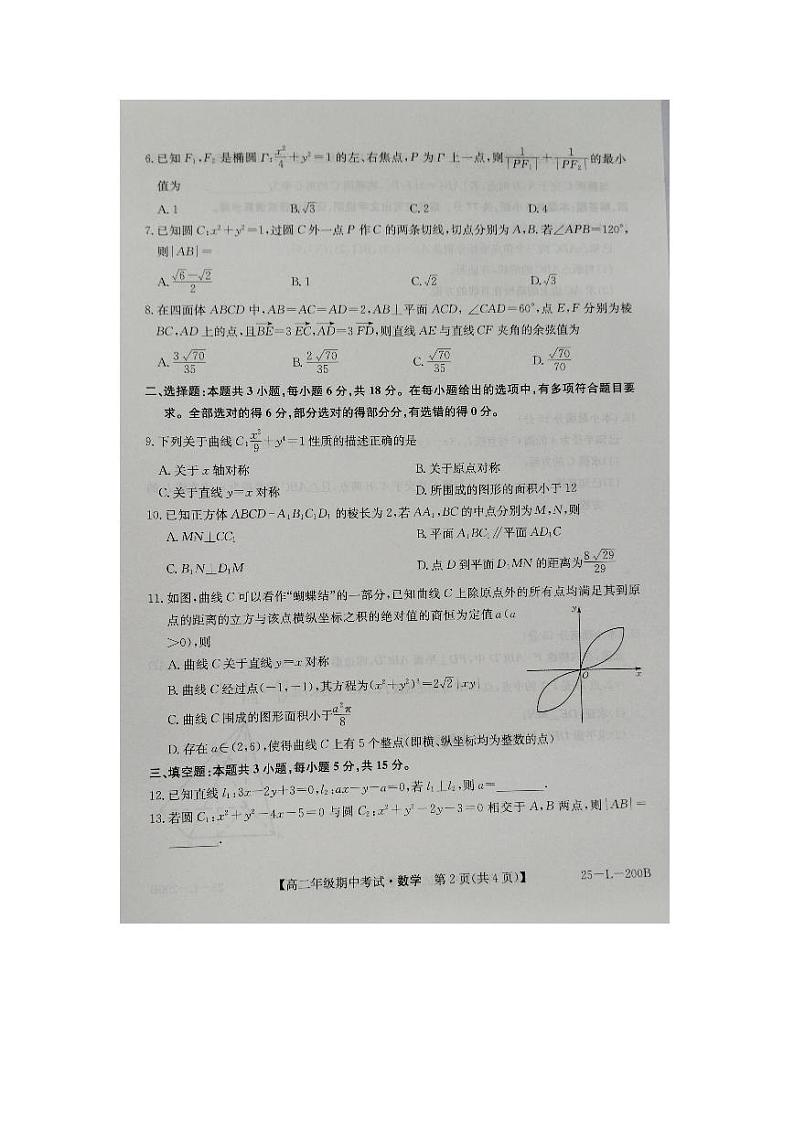 6.已知 F₁,F₂ 是椭圆 Γ:x²/4+y²=1 的左、右焦点,P 为 Γ 上一点,则 1/|PF₁|+1/|PF₂| 的最小
值为
A.1 B.√3 C.2 D.4
7.已知圆 C:x²+y²=1,过圆 C 外一点 P 作 C 的两条切线,切点分别为 A,B.若∠APB=120°,
则|AB|=
A.(√6-√2)/2 B.1 C.√2 D.√3
8.在四面体 ABCD 中,AB=AC=AD=2,AB⊥平面 ACD, ∠CAD=60°,点 E,F 分别为棱
BC,AD 上的点,且BE→=3 EC→,AD→=3 FD→,则直线 AE 与直线CF 夹角的余弦值为
A.3√70/35 B.2√70/35 C.√70/35 D.√70/70
二、选择题:本题共 3 小题,每小题 6 分,共 18 分。在每小题给出的选项中,有多项符合题目要
求。全部选对的得 6 分,部分选对的得部分分,有选错的得 0 分。
9.下列关于曲线 C:x²/9+y⁴=1 性质的描述正确的是
A.关于 x 轴对称 B.关于原点对称
C.关于直线 y=x 对称 D.所围成的图形的面积小于 12
10.已知正方体 ABCD-A₁B₁C₁D₁ 的棱长为 2,若 AA₁,BC 的中点分别为 M,N,则
A.MN⊥CC₁ B.平面 A₁BC₁∥平面 AD₁C
C.B₁N⊥D₁M D.点 D 到平面 D₁MN 的距离为8√29/29
11.如图,曲线 C 可以看作“蝴蝶结”的一部分,已知曲线 C 上除原点外的所有点均满足其到原
点的距离的立方与该点横纵坐标之积的绝对值的商恒为定值 a(a
>0),则
A.曲线 C 关于直线 y=x 对称
B.曲线 C 经过点(-1,-1),其方程为(x²+y²)³=2√2|xy|
C.曲线 C 围成的图形面积小于a²π/8
D.存在 a∈(2,6),使得曲线 C 上有 5 个整点(即横、纵坐标均为整数的点)
y
O
x
三、填空题:本题共 3 小题,每小题 5 分,共 15 分。
12.已知直线 l₁:3x-2y+3=0,l₂:ax-y-a=0,若 l₁⊥l₂,则 a=______.
13.若圆 C₁:x²+y²-4x-5=0 与圆 C₂:x²+y²-2y-3=0 相交于 A,B 两点,则|AB|=
______.
【高二年级期中考试·数学 第 2 页(共 4 页)】 25-L-200B